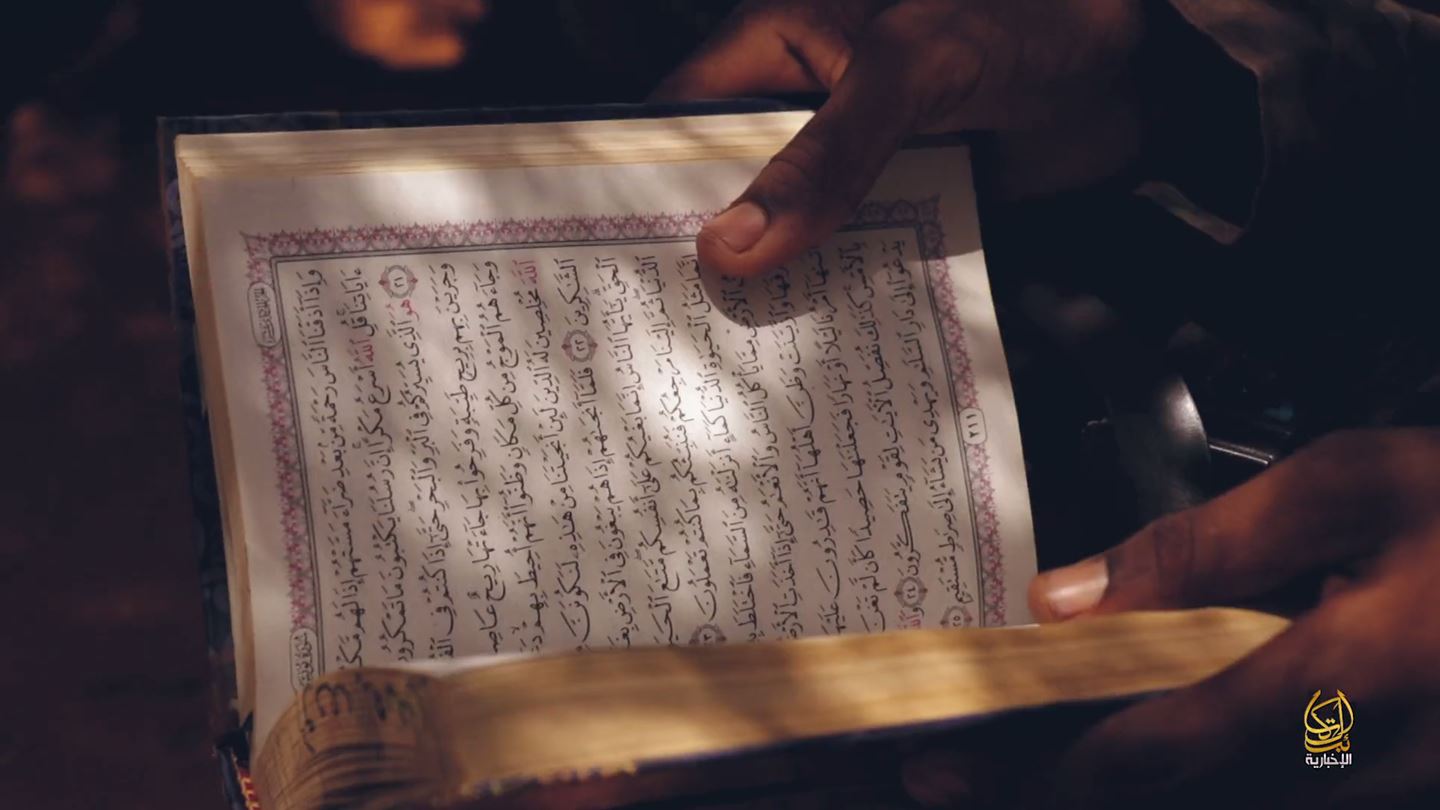 وَإِذَآ أَذَقْنَا ٱلنَّاسَ رَحْمَةً مِّنۢ بَعْدِ ضَرَّآءَ مَسَّتْهُمْ إِذَا لَهُم
ءَايَاتِنَا قُلِ ٱللَّهُ أَسْرَعُ مَكْرًا إِنَّ رُسُلَنَا يَكْتُبُونَ مَا تَمْكُرُونَ
٢١ هُوَ ٱلَّذِى يُسَيِّرُكُمْ فِى ٱلْبَرِّ وَٱلْبَحْرِ حَتَّىٰٓ إِذَا كُنتُمْ فِى
وَجَرَيْنَ بِهِم بِرِيحٍ طَيِّبَةٍ وَفَرِحُوا۟ بِهَا جَآءَتْهَا رِيحٌ
وَجَآءَهُمُ ٱلْمَوْجُ مِن كُلِّ مَكَانٍ وَظَنُّوٓا۟ أَنَّهُمْ أُحِيطَ بِهِمْ
ٱللَّهَ مُخْلِصِينَ لَهُ ٱلدِّينَ لَئِنْ أَنجَيْتَنَا مِنْ هَٰذِهِۦ
ٱلشَّٰكِرِينَ ٢٢ فَلَمَّآ أَنجَىٰهُمْ إِذَا هُمْ يَبْغُونَ فِى ٱلْأَرْضِ
ٱلْحَقِّ يَٰٓأَيُّهَا ٱلنَّاسُ إِنَّمَا بَغْيُكُمْ عَلَىٰٓ أَنفُسِكُم مَّتَٰعَ
ٱلدُّنْيَا ثُمَّ إِلَيْنَا مَرْجِعُكُمْ فَنُنَبِّئُكُم بِمَا كُنتُمْ تَعْمَلُونَ
إِنَّمَا مَثَلُ ٱلْحَيَوٰةِ ٱلدُّنْيَا كَمَآءٍ أَنزَلْنَٰهُ مِنَ ٱلسَّمَآءِ فَٱخْتَلَطَ
ٱلْأَرْضِ مِمَّا يَأْكُلُ ٱلنَّاسُ وَٱلْأَنْعَٰمُ حَتَّىٰٓ إِذَآ أَخَذَتِ
وَٱزَّيَّنَتْ وَظَنَّ أَهْلُهَآ أَنَّهُمْ قَٰدِرُونَ عَلَيْهَآ
أَمْرُنَا لَيْلًا أَوْ نَهَارًا فَجَعَلْنَٰهَا حَصِيدًا كَأَن لَّمْ تَغْنَ
بِٱلْأَمْسِ كَذَٰلِكَ نُفَصِّلُ ٱلْآيَٰتِ لِقَوْمٍ يَتَفَكَّرُونَ ٢٤ وَٱللَّهُ
يَدْعُوٓا۟ إِلَىٰ دَارِ ٱلسَّلَٰمِ وَيَهْدِى مَن يَشَآءُ إِلَىٰ صِرَٰطٍ مُّسْتَقِيمٍ ٢٥
٢١١
الإخبارية